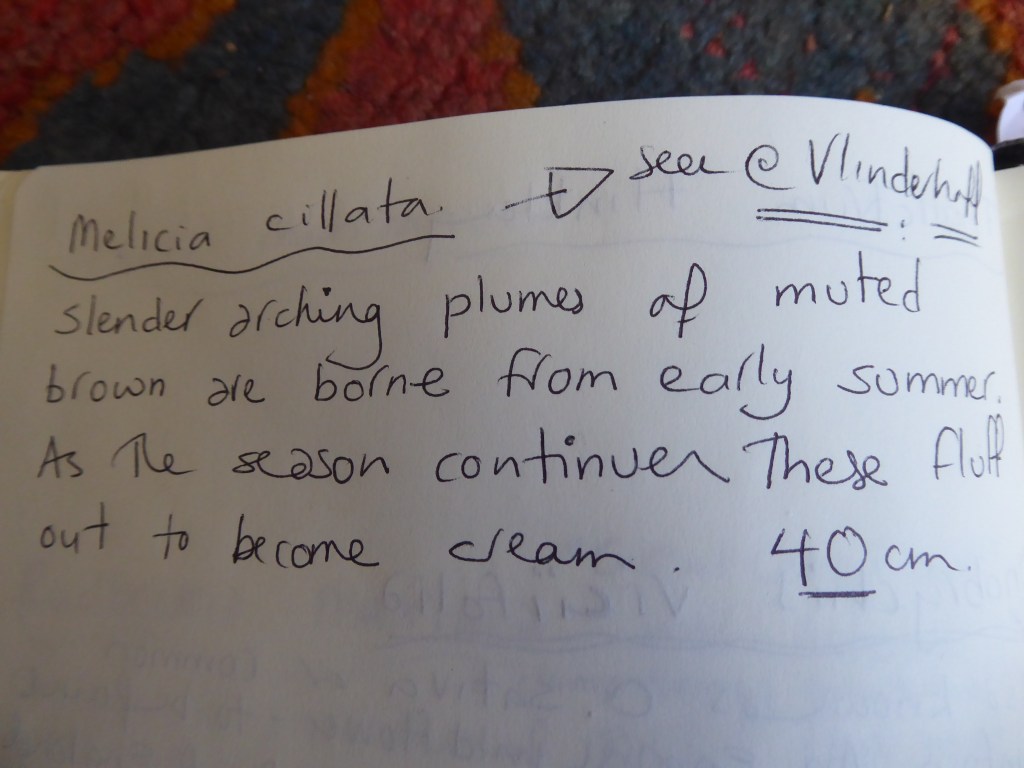 Melicia cillata. → seen @ Vlinderhoff
Slender arching plumes of muted
brown are borne from early summer.
As the season continues these fluff
out to become cream. 40cm.